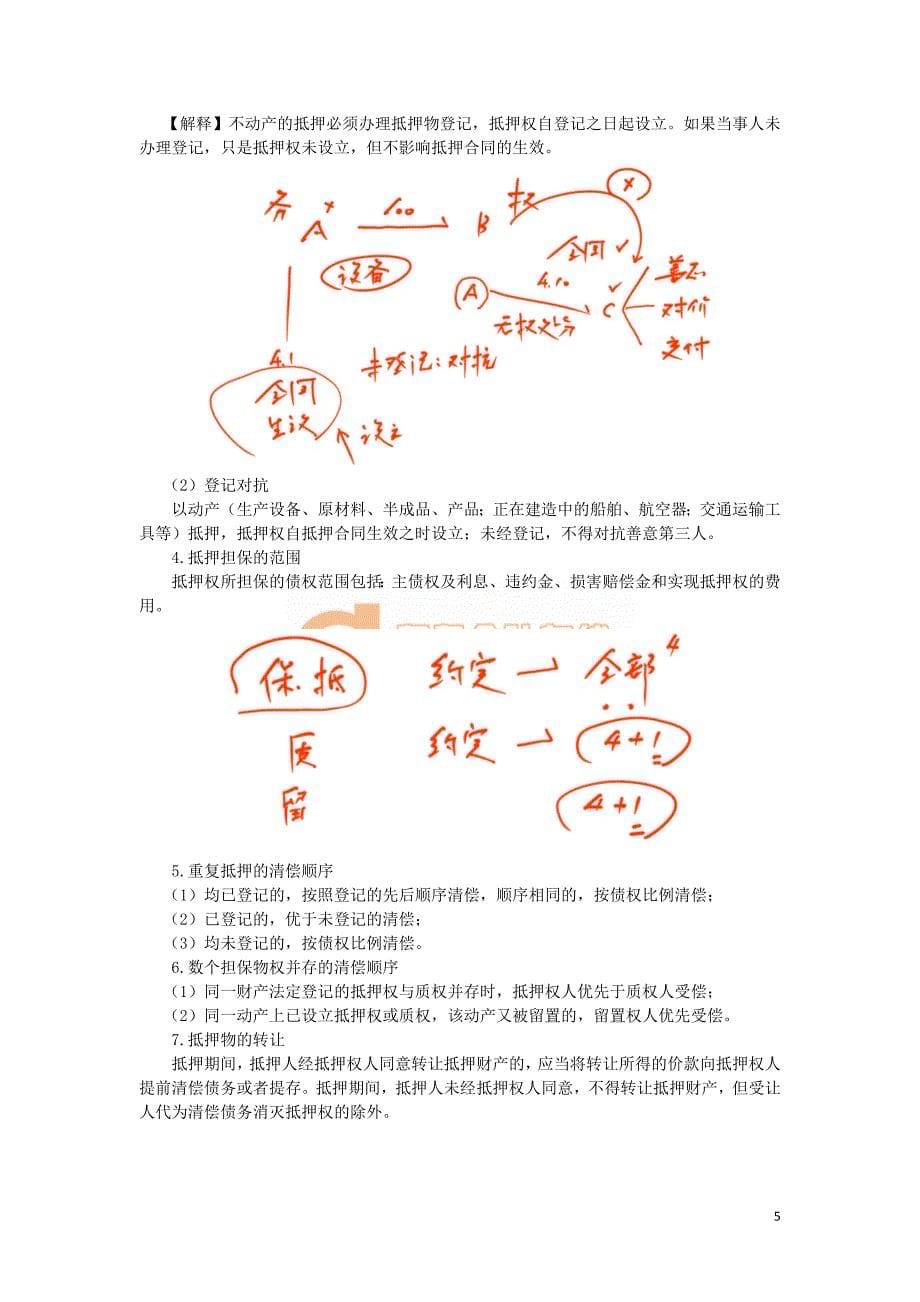 【解释】不动产的抵押必须办理抵押物登记，抵押权自登记之日起设立。如果当事人未
办理登记，只是抵押权未设立，但不影响抵押合同的生效。
务 A × 100 B 权 ×
设备
合同 ✓
A 4.10 C ✓
无权处分
善意
对价
交付
4.1
合同
生效
设立
未登记：对抗
（2）登记对抗
以动产（生产设备、原材料、半成品、产品；正在建造中的船舶、航空器；交通运输工
具等）抵押，抵押权自抵押合同生效之时设立；未经登记，不得对抗善意第三人。
4.抵押担保的范围
抵押权所担保的债权范围包括：主债权及利息、违约金、损害赔偿金和实现抵押权的费
用。
保.抵 约定 → 全部 4
质 约定 → 4+1
留 4+1
5.重复抵押的清偿顺序
（1）均已登记的，按照登记的先后顺序清偿，顺序相同的，按债权比例清偿；
（2）已登记的，优于未登记的清偿；
（3）均未登记的，按债权比例清偿。
6.数个担保物权并存的清偿顺序
（1）同一财产法定登记的抵押权与质权并存时，抵押权人优先于质权人受偿；
（2）同一动产上已设立抵押权或质权，该动产又被留置的，留置权人优先受偿。
7.抵押物的转让
抵押期间，抵押人经抵押权人同意转让抵押财产的，应当将转让所得的价款向抵押权人
提前清偿债务或者提存。抵押期间，抵押人未经抵押权人同意，不得转让抵押财产，但受让
人代为清偿债务消灭抵押权的除外。
5